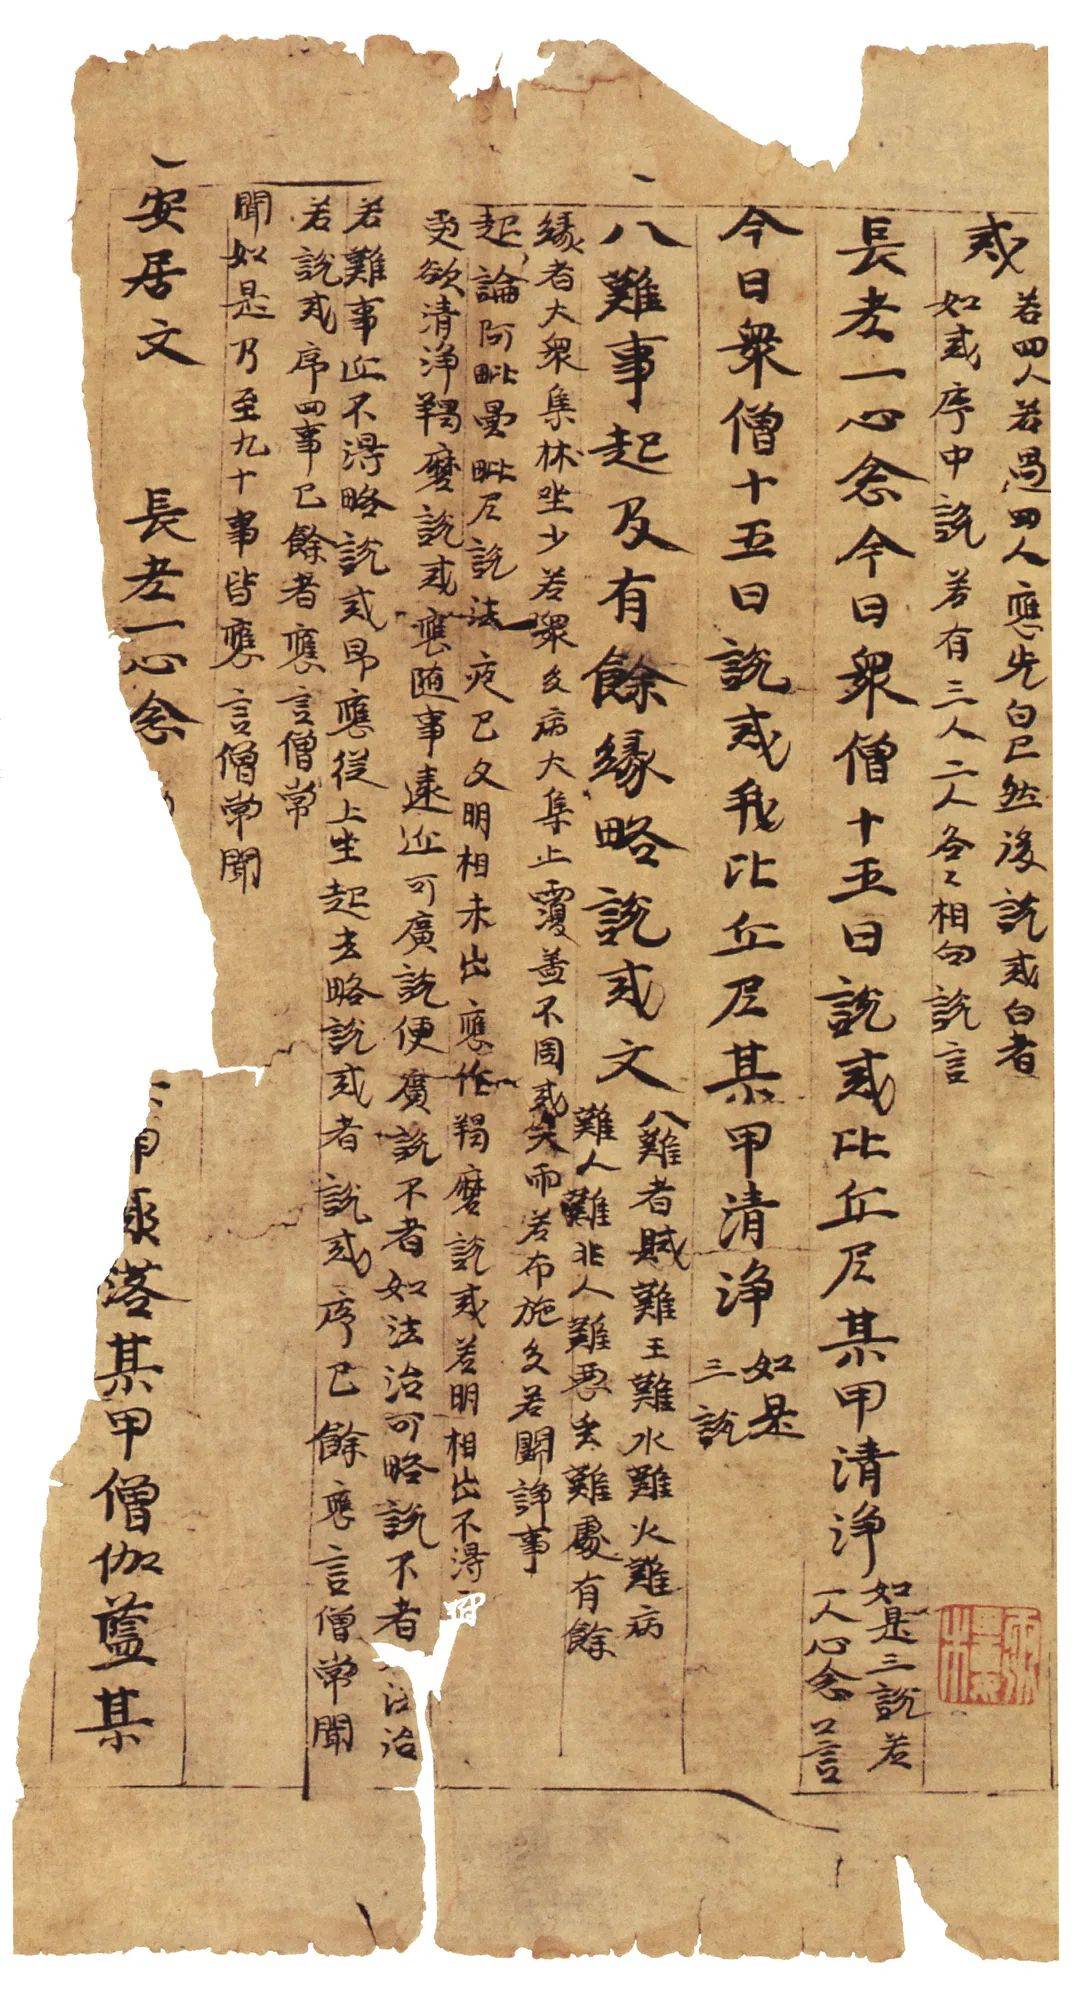 戒 若四人若過四人應先白已然後說戒白者
如戒序中說若有三人二人各〻相向說言
長老一心念今日衆僧十五日說戒比丘尼某甲清淨 如是三說若
一人心念口言
今日衆僧十五日說戒我比丘尼某甲清淨 如是
三說
八難事起及有餘緣略說戒文 八難者賊難王難水難火難病
難人難非人難惡虫難處有餘
緣者大衆集牀坐少若衆多病大集上覆蓋不周或天雨若布施多若鬪諍事
起論阿毗曇毗尼說法夜已久明相未出應作羯磨說戒若明相出不得
更欲清淨羯磨說戒應随事遠近可廣說便廣說不者如法治可略說不者 法治
若難事近不得略說戒即應從上坐起去略說戒者說戒序已餘應言僧常聞
若說戒序四事已餘者應言僧常
聞如是乃至九十事皆應言僧常聞
安居文 長老一心念 落某甲僧伽藍某